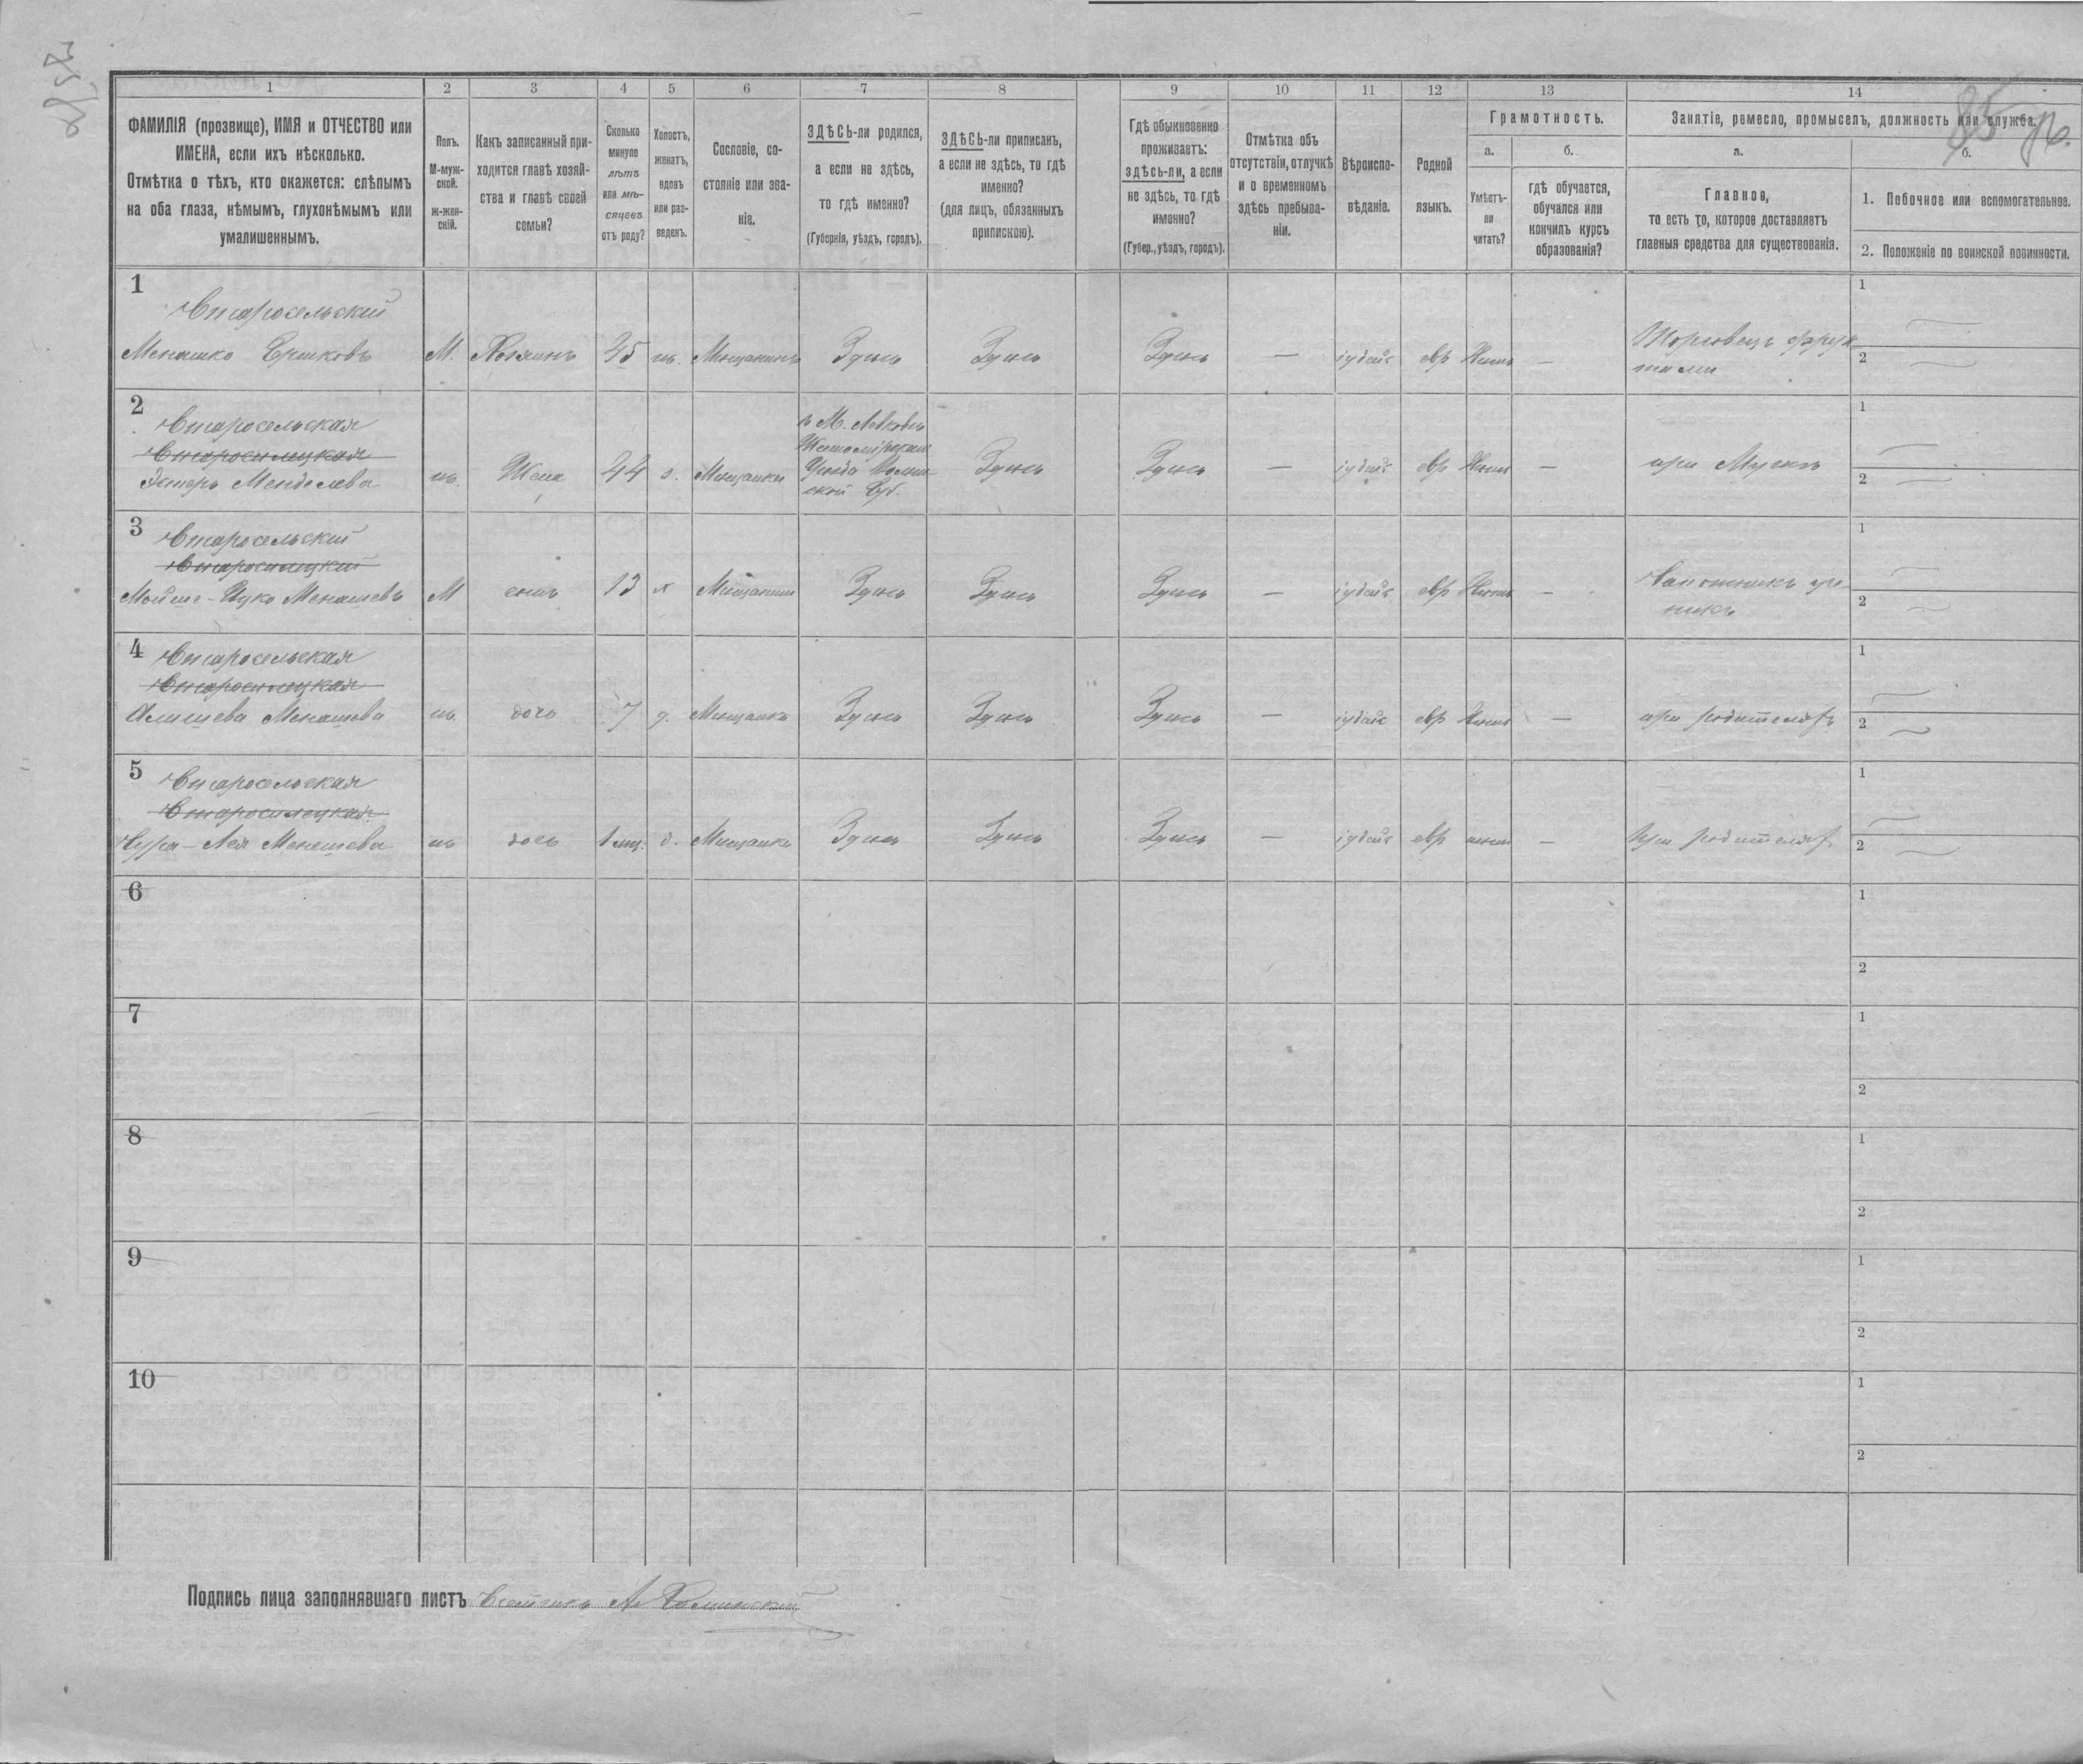 1 2 3 4 5 6 7 8 9 10 11 12 13 14
85
ФАМИЛІЯ (прозвище), ИМЯ и ОТЧЕСТВО или
ИМЕНА, если ихъ нѣсколько.
Отмѣтка о тѣхъ, кто окажется: слѣпымъ
на оба глаза, нѣмымъ, глухонѣмымъ или
умалишеннымъ.
Полъ.
М-муж-
ской.
ж-жен-
скій.
Какъ записанный при-
ходится главѣ хозяй-
ства и главѣ своей
семьи?
Сколько
минуло
лѣтъ
или мѣ-
сяцевъ
отъ роду?
Холостъ,
женатъ,
вдовъ
или раз-
веденъ.
Сословіе, со-
стояніе или зва-
ніе.
ЗДѢСЬ-ли родился,
а если не здѣсь,
то гдѣ именно?
(Губернія, уѣздъ, городъ).
ЗДѢСЬ-ли приписанъ,
а если не здѣсь, то гдѣ
именно?
(для лицъ, обязанныхъ
припискою).
Гдѣ обыкновенно
проживаетъ:
здѣсь-ли, а если
не здѣсь, то гдѣ
именно?
(Губер., уѣздъ, городъ).
Отмѣтка объ
отсутствіи, отлучкѣ
и о временномъ
здѣсь пребыва-
ніи.
Вѣроиспо-
вѣданіе.
Родной
языкъ.
Грамотность.
а.
Умѣетъ-
ли
читать?
б.
гдѣ обучается,
обучался или
кончилъ курсъ
образованія?
Занятіе, ремесло, промыселъ, должность или служба.
а.
Главное,
то есть то, которое доставляетъ
главныя средства для существованія.
б.
1. Побочное или вспомогательное.
2. Положеніе по воинской повинности.
1
Старосельский
Менашко Ершковъ М. Хозяинъ 45 ж. Мещанинъ Здесь Здесь Здесь — іудайс евр Нетъ —
Торговецъ фрук
тами
1
2
2
Старосельская
Старосилецкая
Эстеръ Менделева ж. Жена 44 з. Мещанка
Житомірскаго
Уезда Волын
ской Губ.
Здесь Здесь — іудайс евр Нетъ — при Мужъ
1
2
3
Старосельский
Старосилецкий
Мойше-Ицко Менашевъ М сынъ 13 х Мещанинъ Здесь Здесь Здесь — іудайс евр Нетъ —
Сапожникъ уче
никъ
1
2
4
Старосельская
Старосилецкая
Менашева ж. дочь 7 д. Мещанка Здесь Здесь Здесь — іудайс евр Нетъ — при родителяхъ
1
2
5
Старосельская
Старосилецкая
Сура-Лея Менешева ж дочь 1 мц. д. Мещанка Здесь Здесь Здесь — іудайс евр нетъ — при родителях
1
2
6
1
2
7
1
2
8
1
2
9
1
2
10
1
2
Подпись лица заполнявшаго листъ